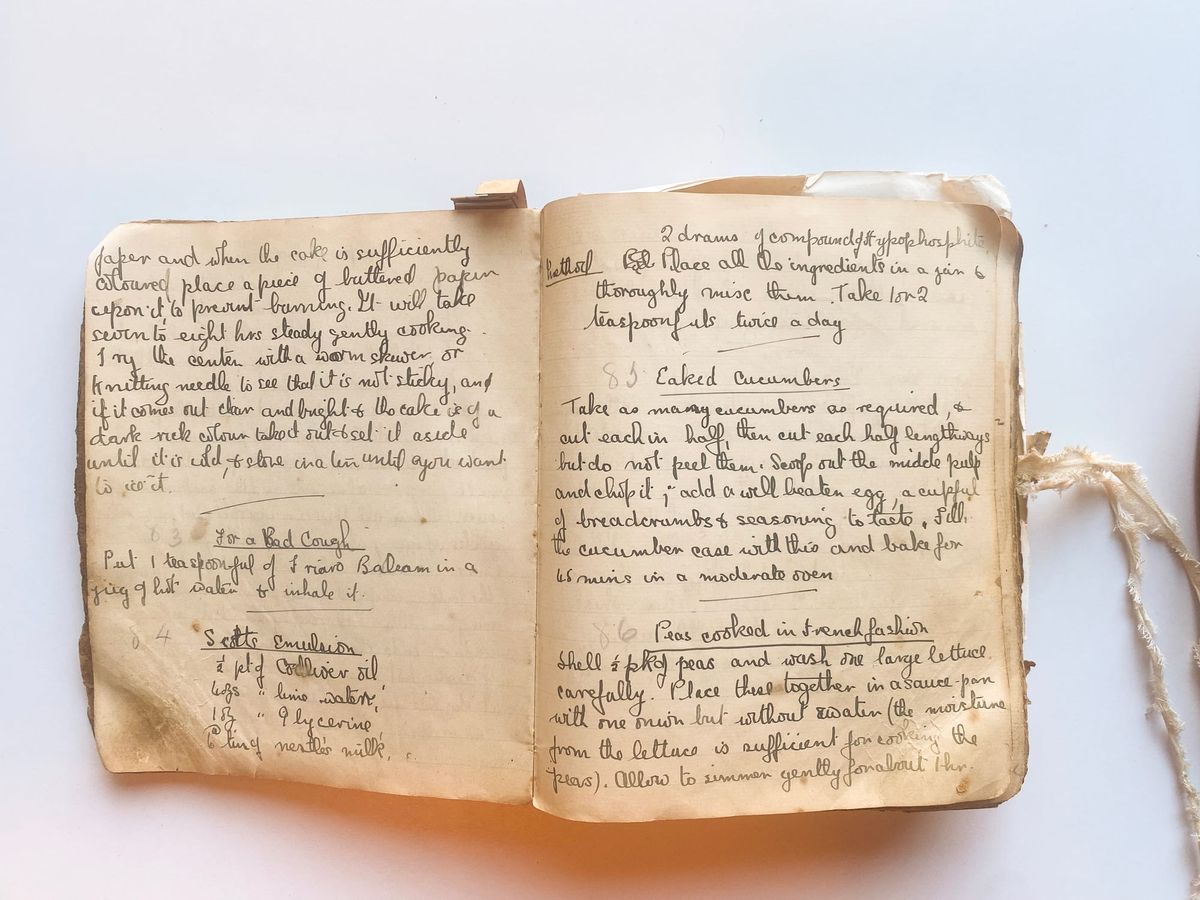 paper and when the cake is sufficiently
coloured place a piece of buttered paper
upon it to prevent burning. It will take
seven to eight hrs steady gently cooking.
Try the center with a warm skewer or
Knitting needle to see that it is not sticky, and
if it comes out clear and bright & the cake is of a
dark rich colour take it out & set it aside
until it is cold & store in a tin until you want
to it.
83 For a Bad Cough
Put 1 teaspoonful of Friars Balsam in a
jug of hot water & inhale it.
84 Scotts Emulsion
½ pt of Codliver oil
4ozs " lime water,
1oz " Glycerine
tin of nestle's milk,
2 drams of compound of Hypophosphite
Method Place all the ingredients in a jar &
thoroughly mix them. Take 1 or 2
teaspoonfuls twice a day
85 Baked Cucumbers
Take as many cucumbers as required, &
cut each in half, then cut each half lengthways
but do not peel them. Scoop out the middle pulp
and chop it; add a well beaten egg, a cupful
of breadcrumbs & seasoning to taste. Fill
the cucumber case with this and bake for
45 mins in a moderate oven
86 Peas cooked in French fashion
Shell ½ pk of peas and wash one large lettuce
carefully. Place these together in a sauce-pan
with one onion but without water (the moisture
from the lettuce is sufficient for cooking the
peas). Allow to simmer gently for about 1 hr.